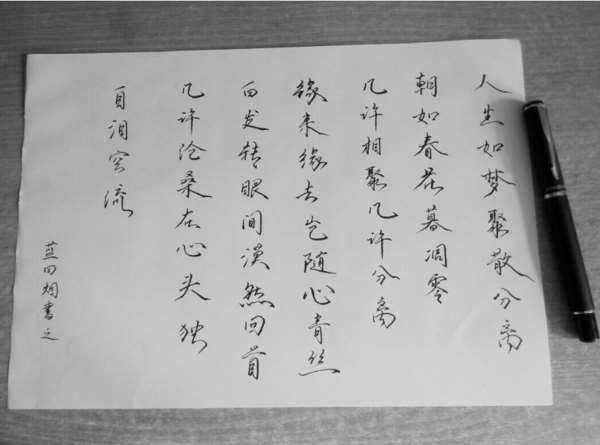 人生如梦聚散分离
朝如春花暮凋零
几许相聚几许分离
缘来缘去岂随心青丝
白发转眼间漠然回首
几许沧桑在心头独
自泪空流
蓝田烟书之